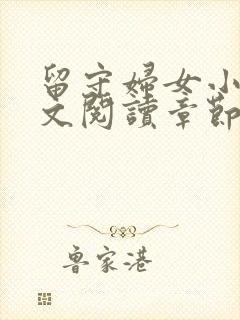 留守婦女小
文閱讀章節
魯家港